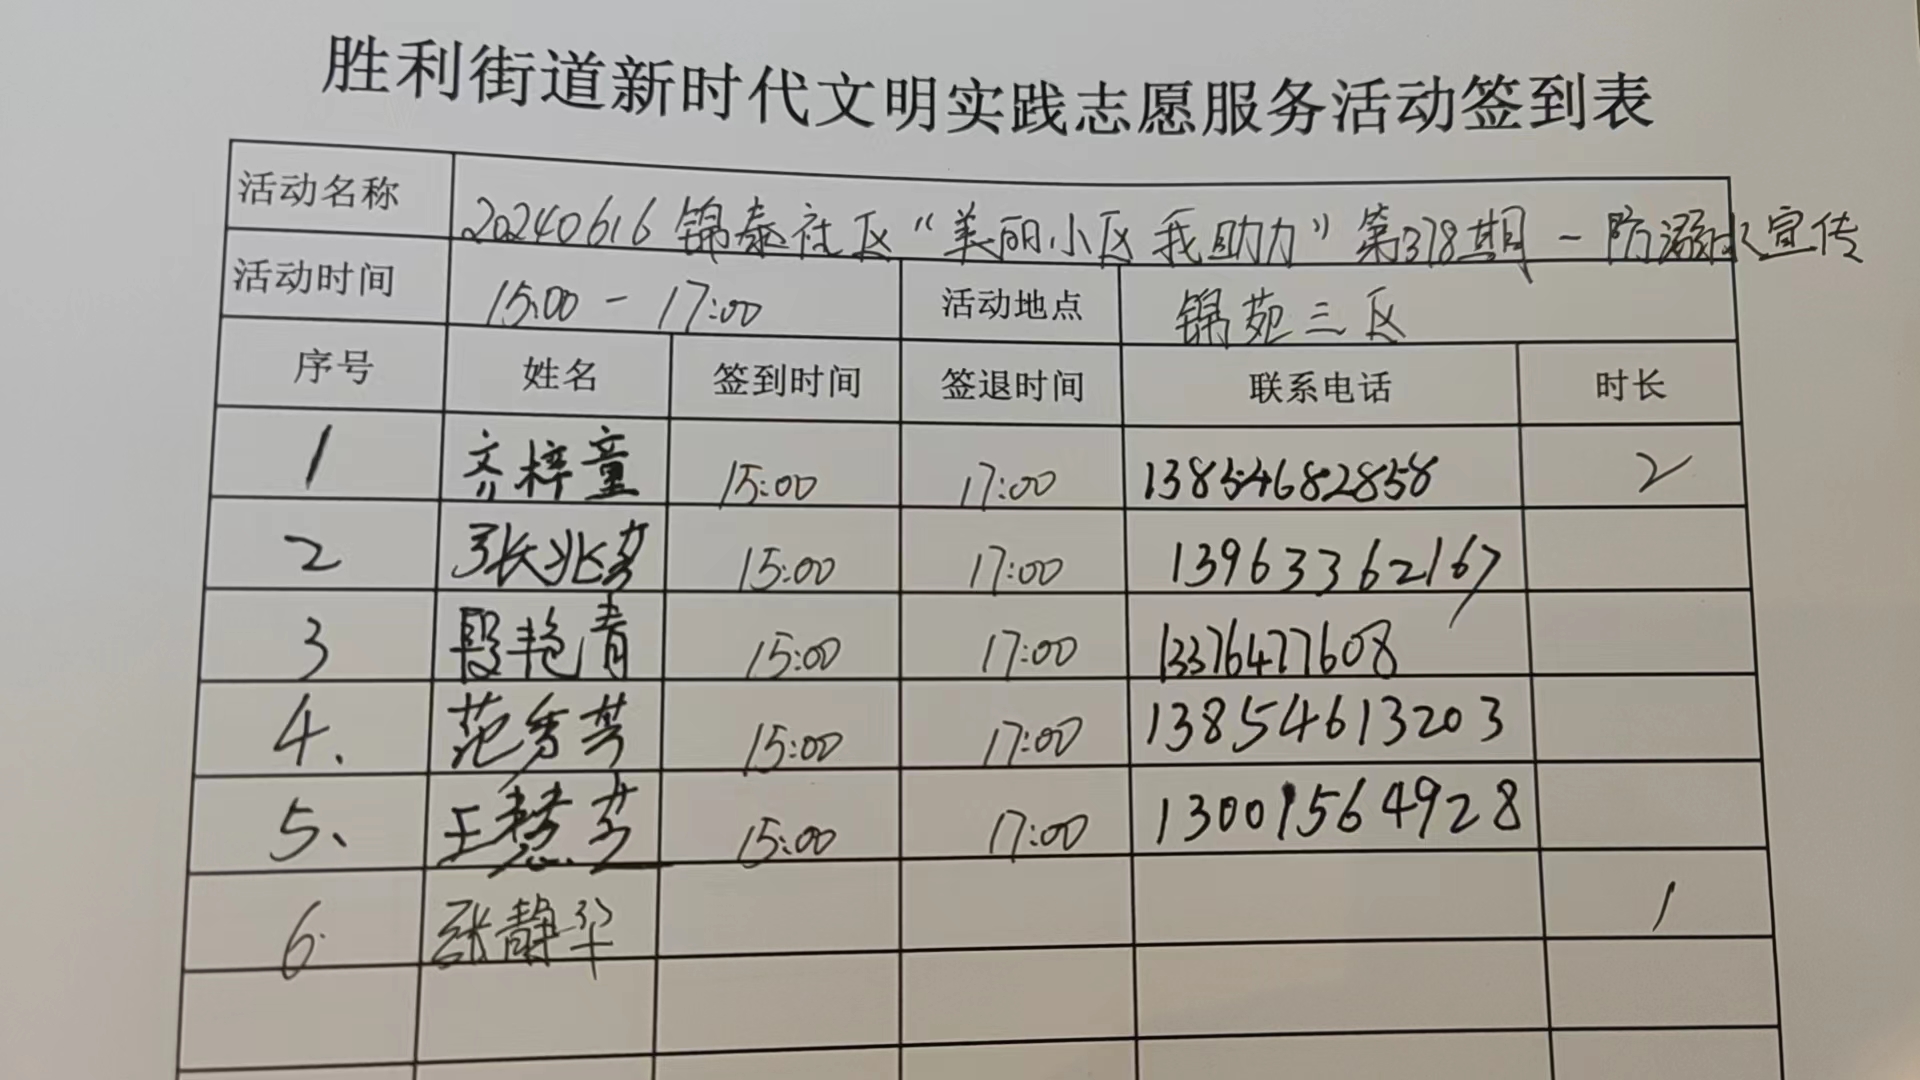 胜利街道新时代文明实践志愿服务活动签到表
活动名称 20240616锦泰社区“美丽小区 我助力”第378期-防溺水宣传
活动时间 15:00-17:00 活动地点 锦苑三区
序号 姓名 签到时间 签退时间 联系电话 时长
1 齐梓童 15:00 17:00 13854682858 2
2 张兆芬 15:00 17:00 13963362167
3 段艳青 15:00 17:00 13376477608
4. 范秀芳 15:00 17:00 13854613203
5、 王慧芳 15:00 17:00 13001564928
6 张静华 1